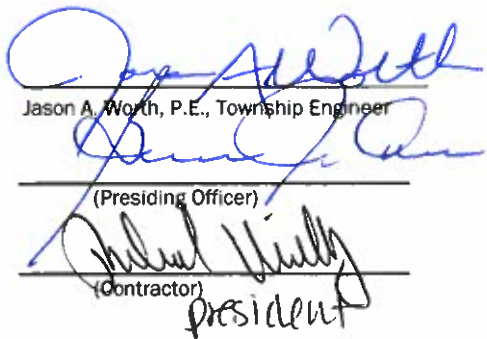 Jason A. Worth
Jason A. Worth, P.E., Township Engineer
(Presiding Officer)
(Contractor)
president